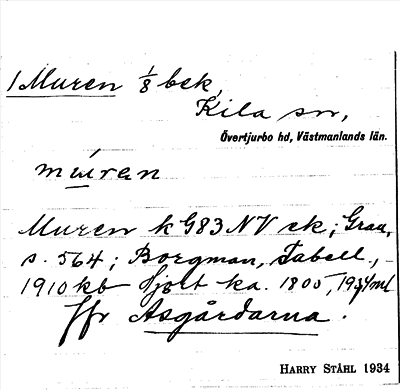 1 Muren 1/8 bek,
Kila sn,
Övertjurbo hd, Västmanlands län.
mu̇ren
Muren k G83 NV ek; Grau,
s. 564; Borgman, Tabell.,
1910 kb Hjort ka. 1805, 1934 ml
ffr Asgårdarna.
HARRY STÅHL 1934